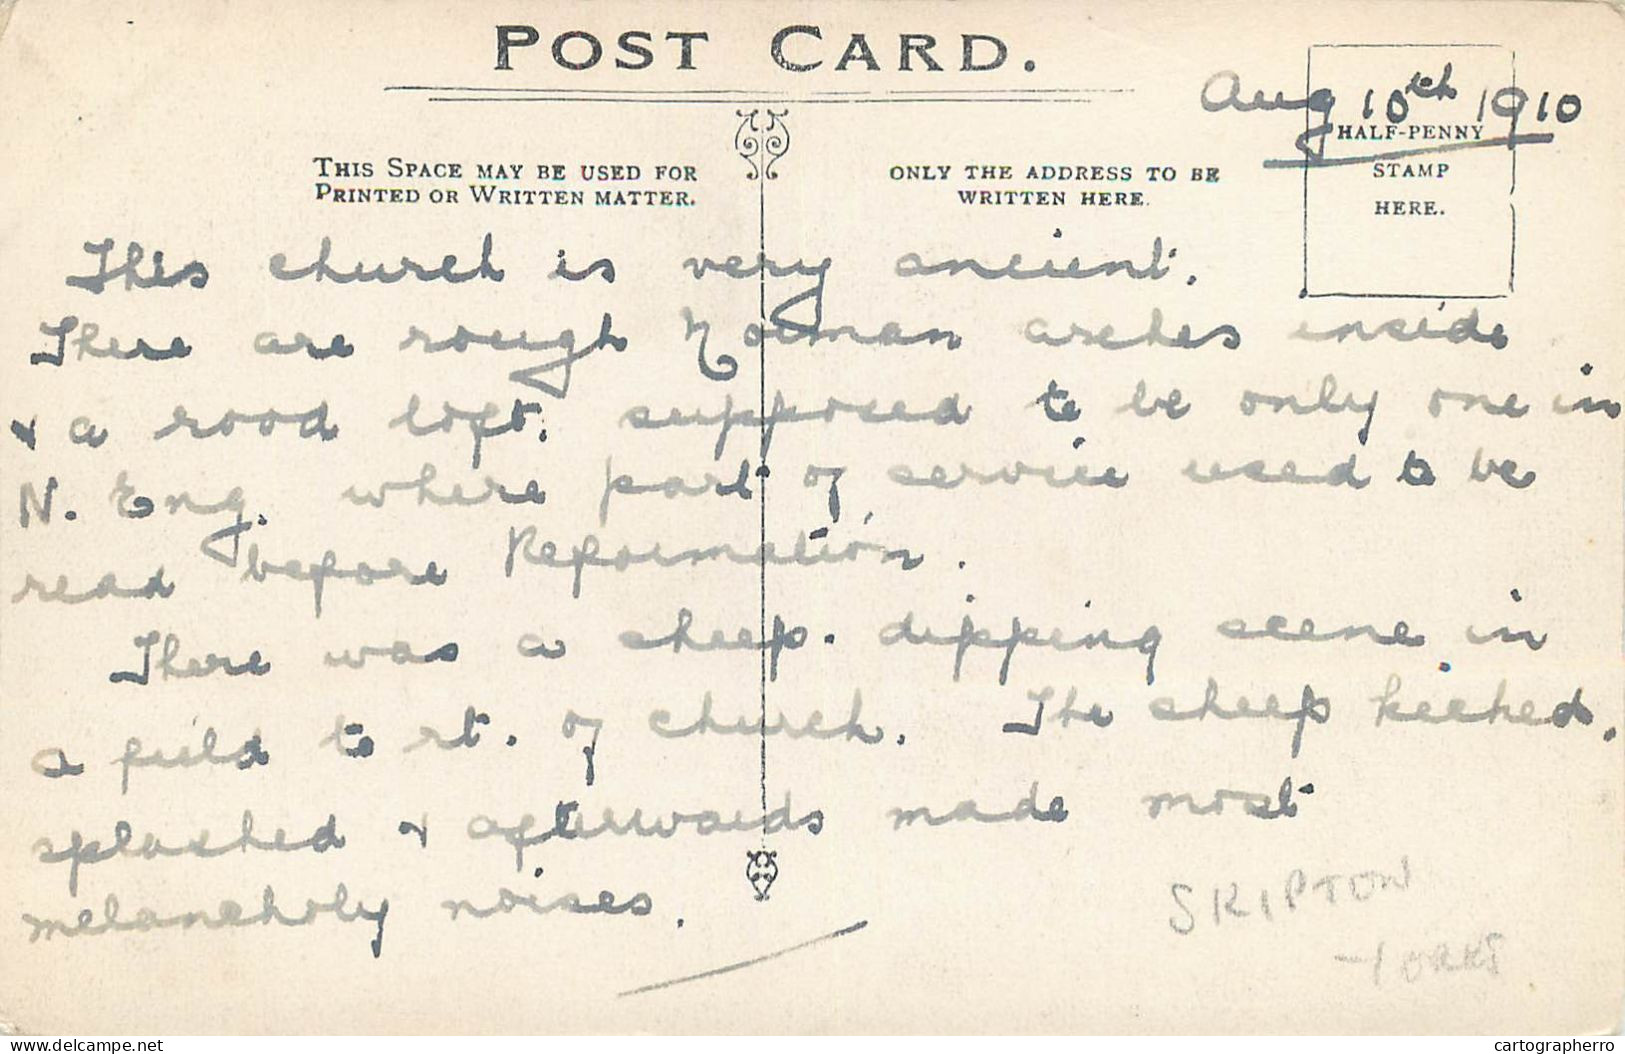 POST CARD.
Aug 10th 1910
THIS SPACE MAY BE USED FOR
PRINTED OR WRITTEN MATTER.
ONLY THE ADDRESS TO BE
WRITTEN HERE.
HALF-PENNY
STAMP
HERE.
This church is very ancient.
There are rough Norman arches inside
& a rood loft. supposed to be only one in
N. Eng. where part of service used to be
read before Reformation.
There was a sheep-dipping scene in
a field to rt. of church. The sheep kicked,
splashed & afterwards made most
melancholy noises.
SKIPTON
YORKS
delcampe.net
cartographerro